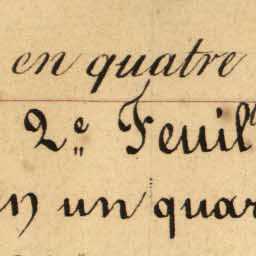 en quatre
2e Feuil
n un quar